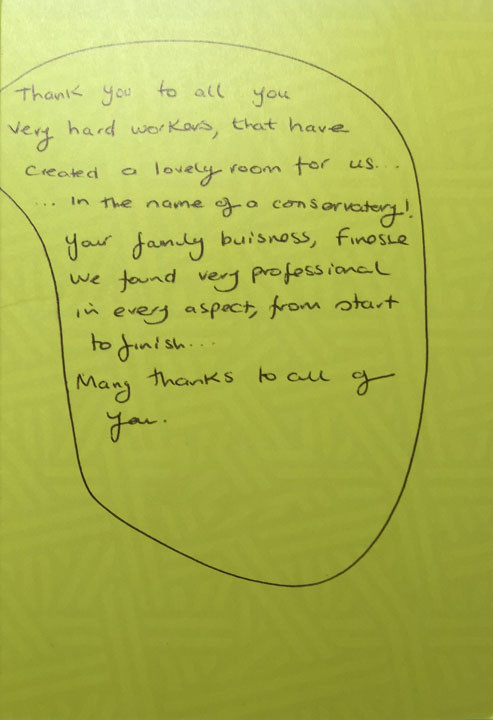 Thank you to all you
very hard workers, that have
created a lovely room for us...
... in the name of a conservatory!
Your family buisness, Finesse
we found very professional
in every aspect, from start
to finish...
Many thanks to all of
you.